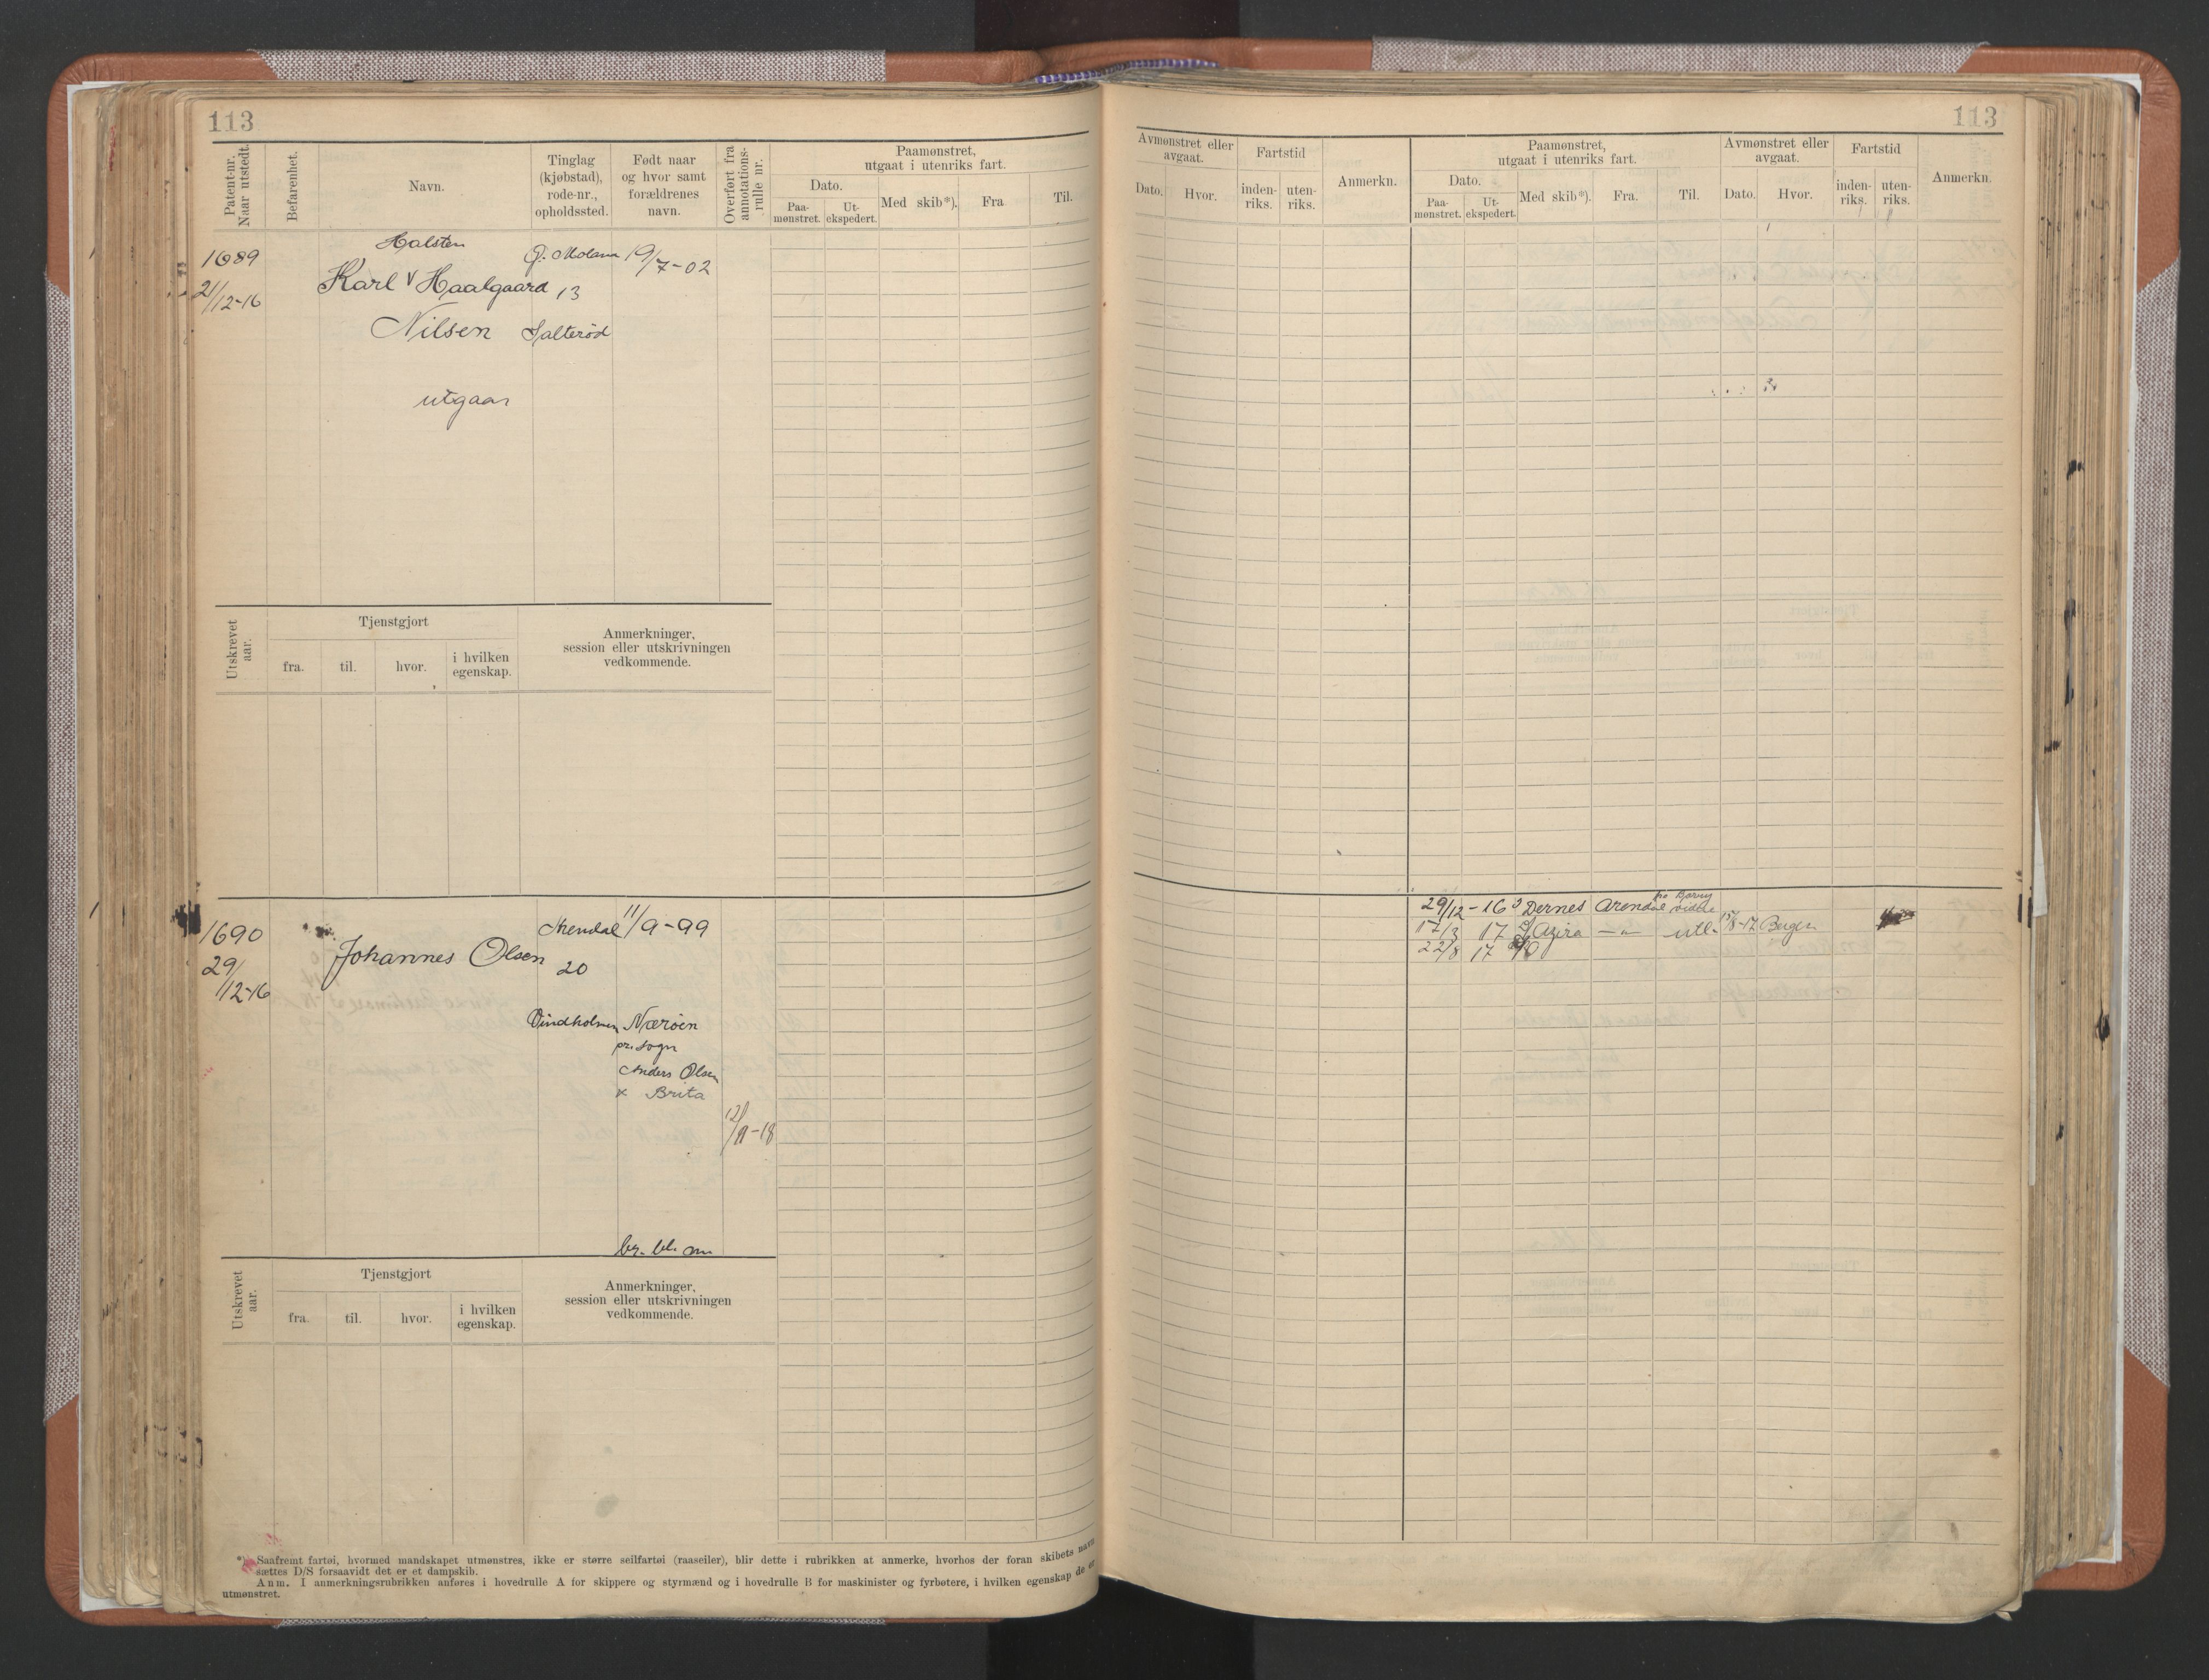 113
Patent-nr.
Naar utstedt.
Befarenhet.
Navn.
Tinglag
(kjøbstad),
rode-nr.,
opholdssted.
Født naar
og hvor samt
forældrenes
navn.
Overført fra
annotations-
rulle nr.
Paamønstret,
utgaat i utenriks fart.
Dato.
Paa-
mønstret.
Ut-
ekspedert.
Med skib*).
Fra
Til.
1689
21/12-16
Halsten
Karl V Haalgaard
Nilsen
Ø. Moland
13
Salterød
19/7-02
utgaar
Utskrevet
aar.
Tjenstgjort
fra.
til.
hvor.
i hvilken
egenskap.
Anmerkninger,
session eller utskrivningen
vedkommende.
1690
29/12-16
Johannes Olsen
Arendal
20
Vindholmen
11/9-99
Nærøen
pr. Sogn
Anders Olsen
x Brita
12/11-18
Utskrevet
aar.
Tjenstgjort
fra.
til.
hvor.
i hvilken
egenskap.
Anmerkninger,
session eller utskrivningen
vedkommende.
*) Saafremt fartøi, hvormed mandskapet utmønstres, ikke er større seilfartøi (raaseiler), blir dette i rubrikken at anmerke, hvorhos der foran skibets navn
sættes D/S forsaavidt det er et dampskib.
Anm. I anmerkningsrubrikken anføres i hovedrulle A for skippere og styrmænd og i hovedrulle B for maskinister og fyrbøtere, i hvilken egenskap de er
utmønstret.
113
Avmønstret eller
avgaat.
Dato.
Hvor.
Fartstid
inden-
riks.
uten-
riks.
Anmerkn.
Paamønstret,
utgaat i utenriks fart.
Dato.
Paa-
mønstret.
Ut-
ekspedert.
Med skib*).
Fra.
Til.
Avmønstret eller
avgaat.
Dato.
Hvor.
Fartstid
inden-
riks.
uten-
riks.
Anmerkn.
29/12-16 Dernes Arendal Barry videre
17/3 17 Azira — " — utl. 15/8-17 Bergen
22/8 17